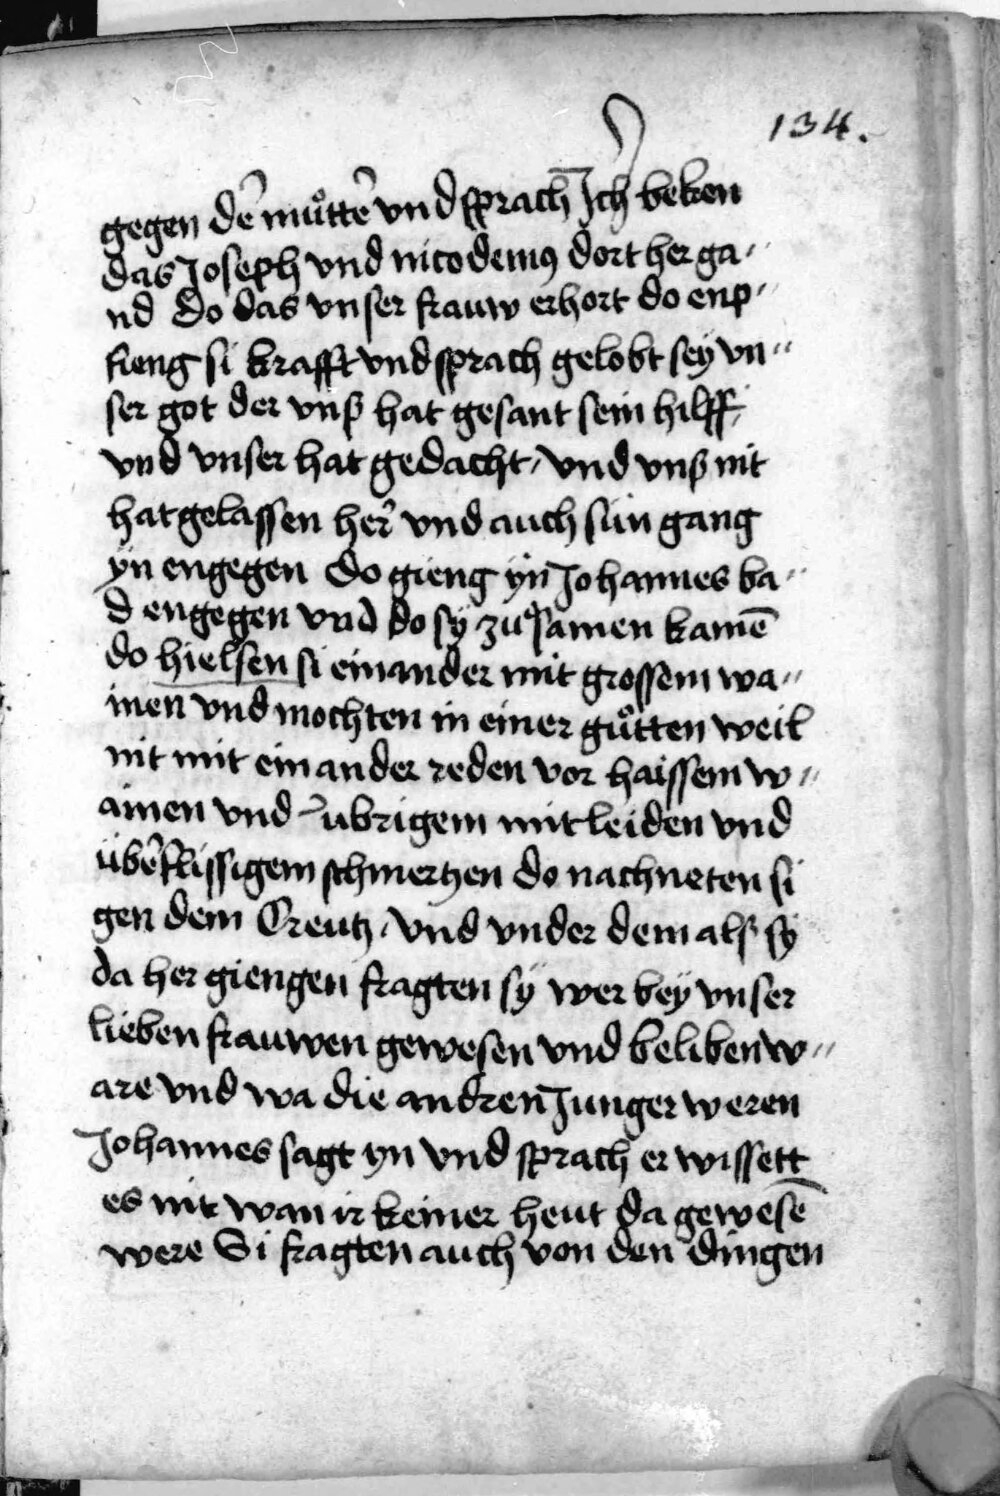 134.
gegen dē mu̇ttē vnd sprach Ich beken
das Joseph vnd nicodemꝰ dort her ga〃
nd do das vnser frauw erhort do enp〃
fieng si krafft vnd sprach gelobt sey vn〃
ser got der vnß hat gesant sein hilff /
vnd vnser hat gedacht / vnd vnß nit
hat gelassen her̄ vnd auch sun gang
yn engegen do gieng yn Johannes ba〃
d engegen vnd do sy zuͦsamen kamē
do hielsen si einander mit grossem wa〃
inen vnd mochten in einer guͦtten weil
nit mit einander reden vor haissem w〃
ainen vnd ubrigem mitleiden vnd
übē flissigem schmertzen do nachneten si
gen dem Creutz / vnd vnder dem alß sÿ
da her giengen fragten sÿ wer beÿ vnser
lieben frauwen gewesen vnd beliben w〃
are vnd wa die andren Junger weren
Johannes sagt yn vnd sprach er wissett
es nit wan ir keiner heut da gewesē
were Si fragten auch von den dingen